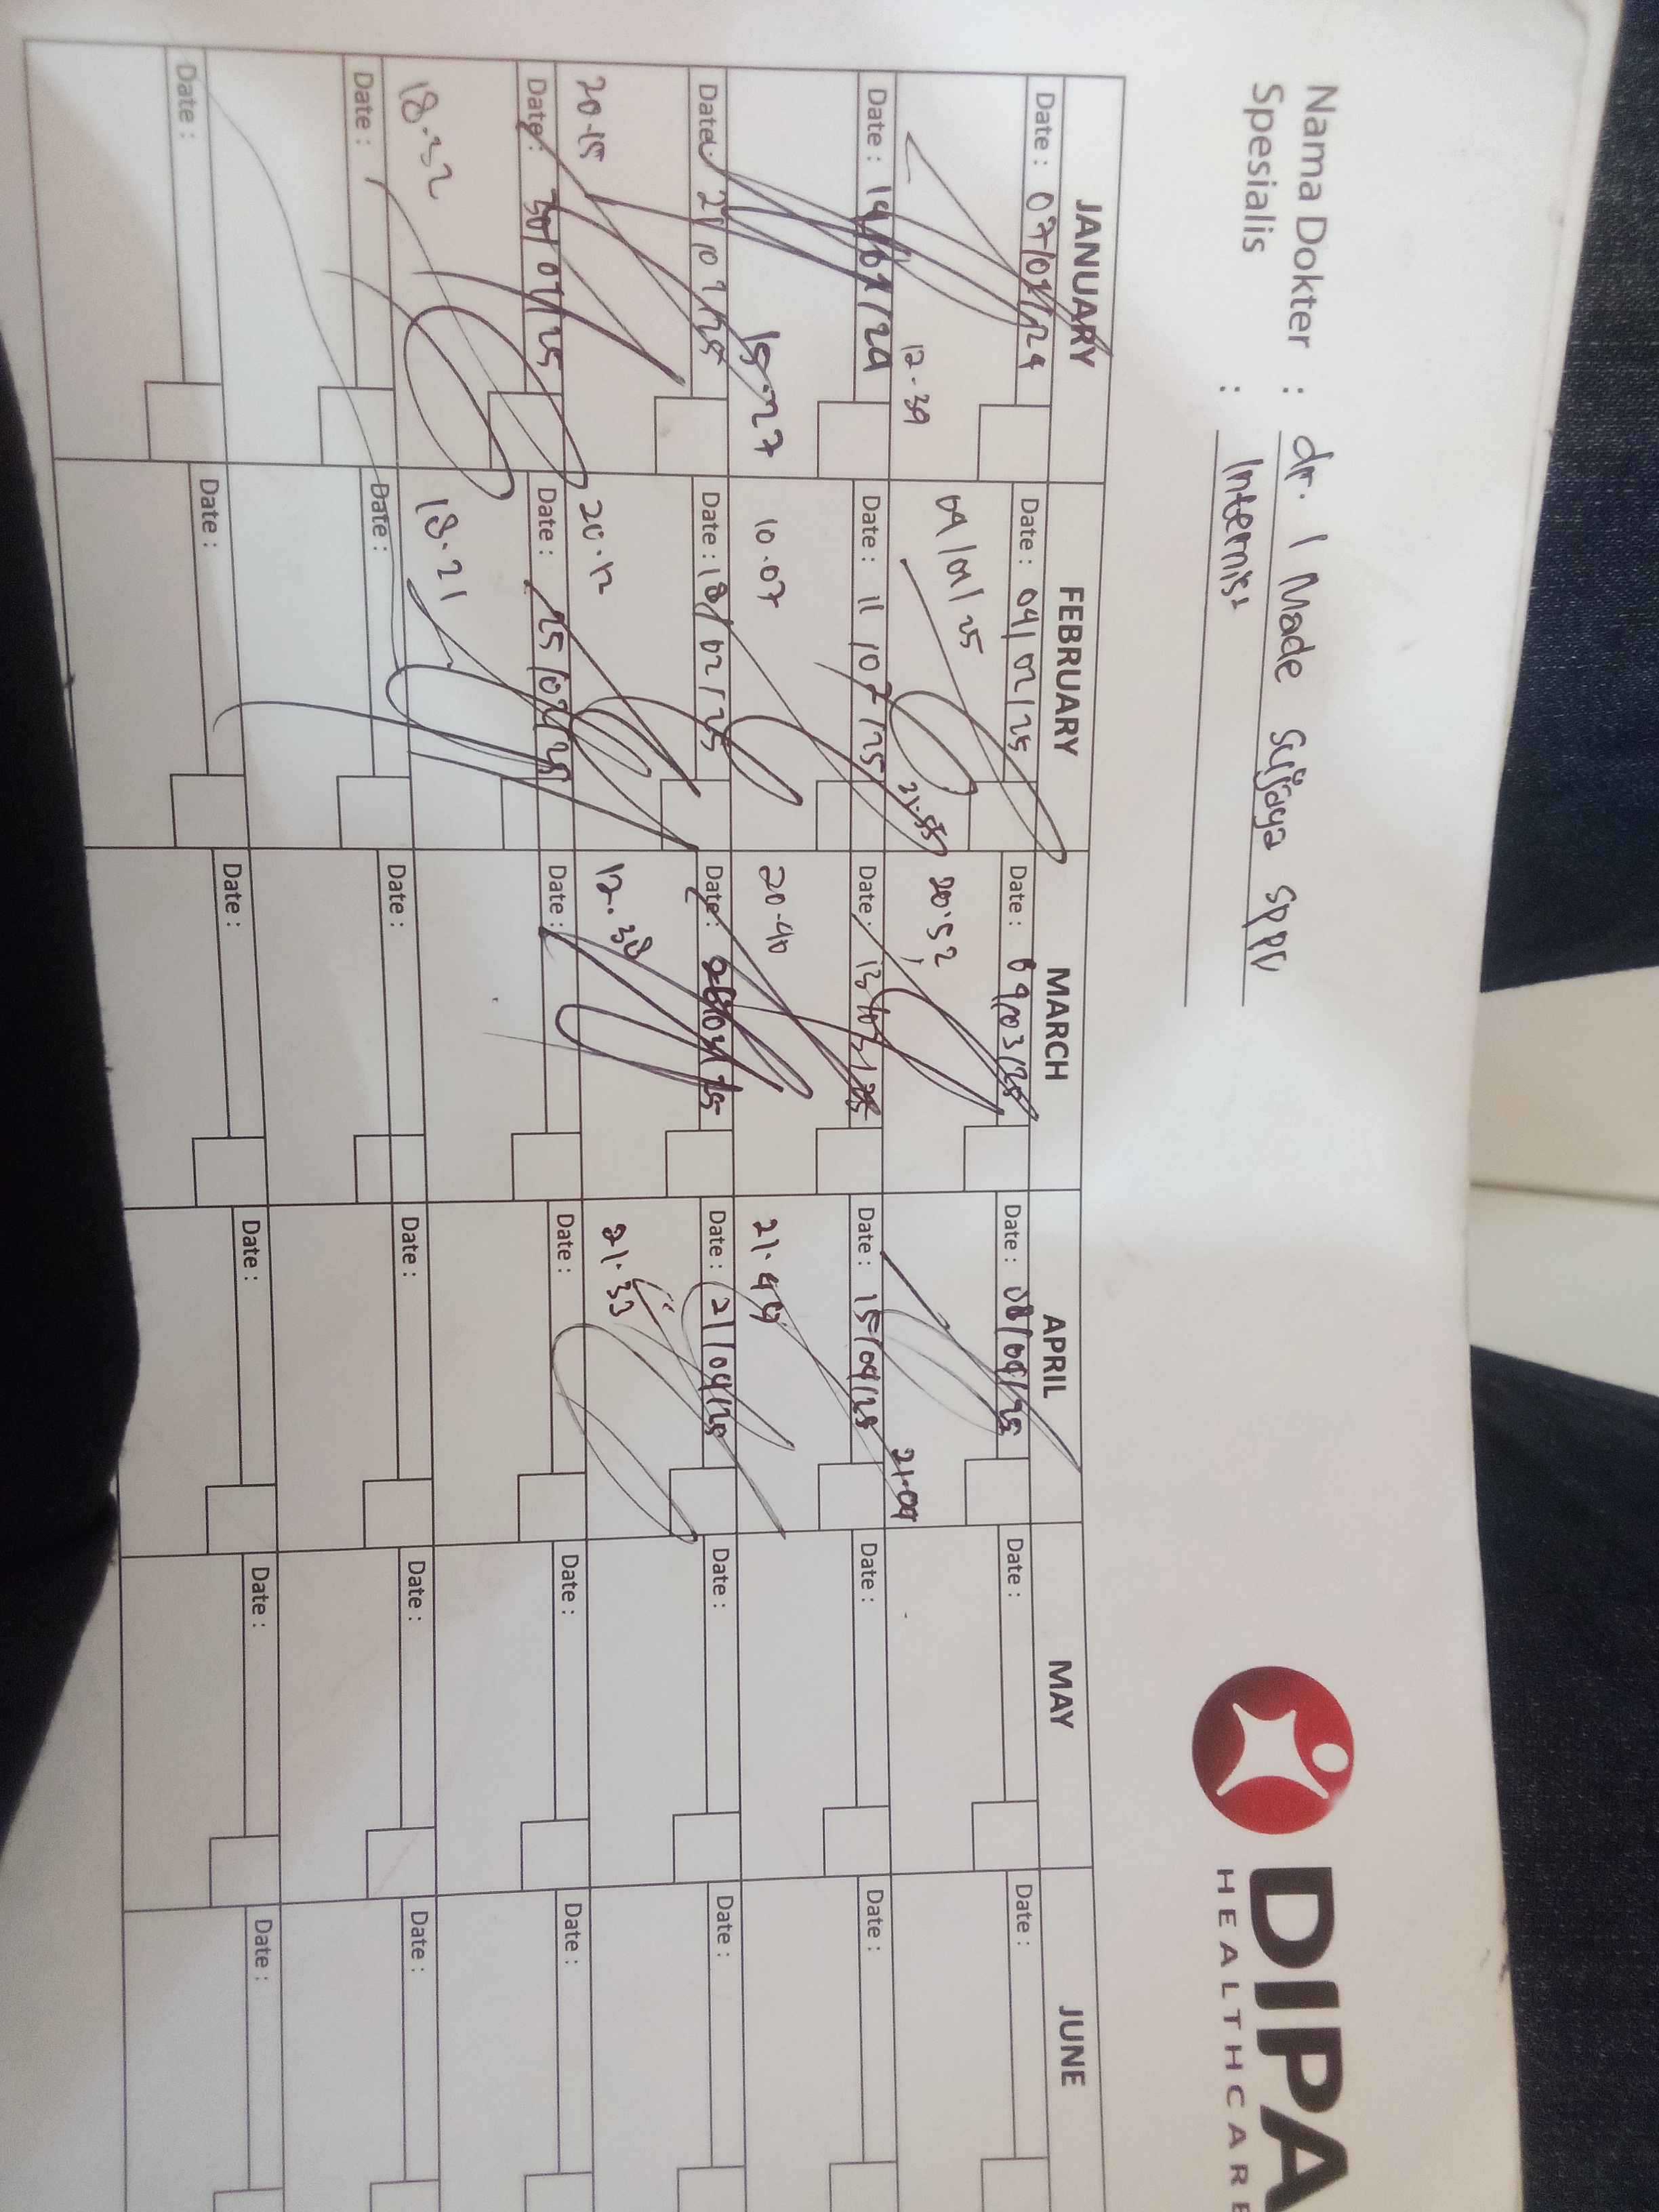 Nama Dokter : dr. I Made Sujaya SpPD
Spesialis : Internist
DIPA
HEALTHCARE
JANUARY FEBRUARY MARCH APRIL MAY JUNE
Date : 07/01/24 Date : 04/02/25 Date : 03/25 Date : 08/04/25 Date : Date :
12.39 04/01/25 21.55 20.52 21.09
Date : 14/01/24 Date : 11/02/25 Date : 13/03/25 Date : 15/04/25 Date : Date :
15.27 10.07 20.40 21.49
Date : 21/01/25 Date : 18/02/25 Date : 03/25 Date : 21/04/25 Date : Date :
20.15 20.12 12.38 21.33
Date : 30/01/25 Date : 25/02/25 Date : Date : Date : Date :
18.32 18.21
Date : Date : Date : Date : Date : Date :
Date : Date : Date : Date : Date : Date :